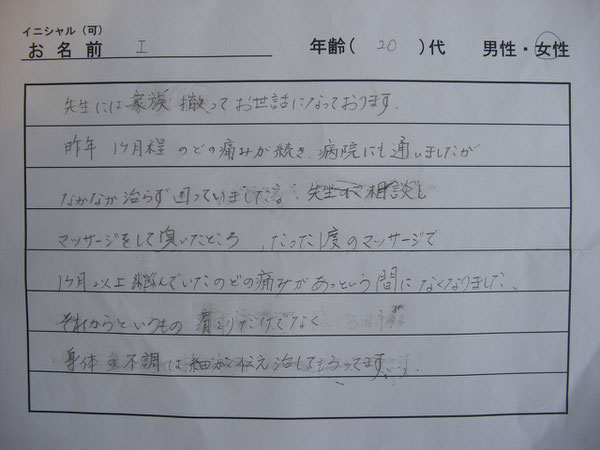 イニシャル(可)
お名前 I 年齢( 20 )代 男性・女性
先生には家族 揃って お世話になっております。
昨年 1ヶ月程 のどの痛みが続き、病院にも通いましたが
なかなか治らず 困っていました。 先生に 相談し
マッサージをして頂いたところ たった1度のマッサージで
1ヶ月以上 悩んでいたのどの痛みがあっという間になくなりました。
それからというもの 肩こりだけでなく
身体の不調は細かく伝え治してもらってます。